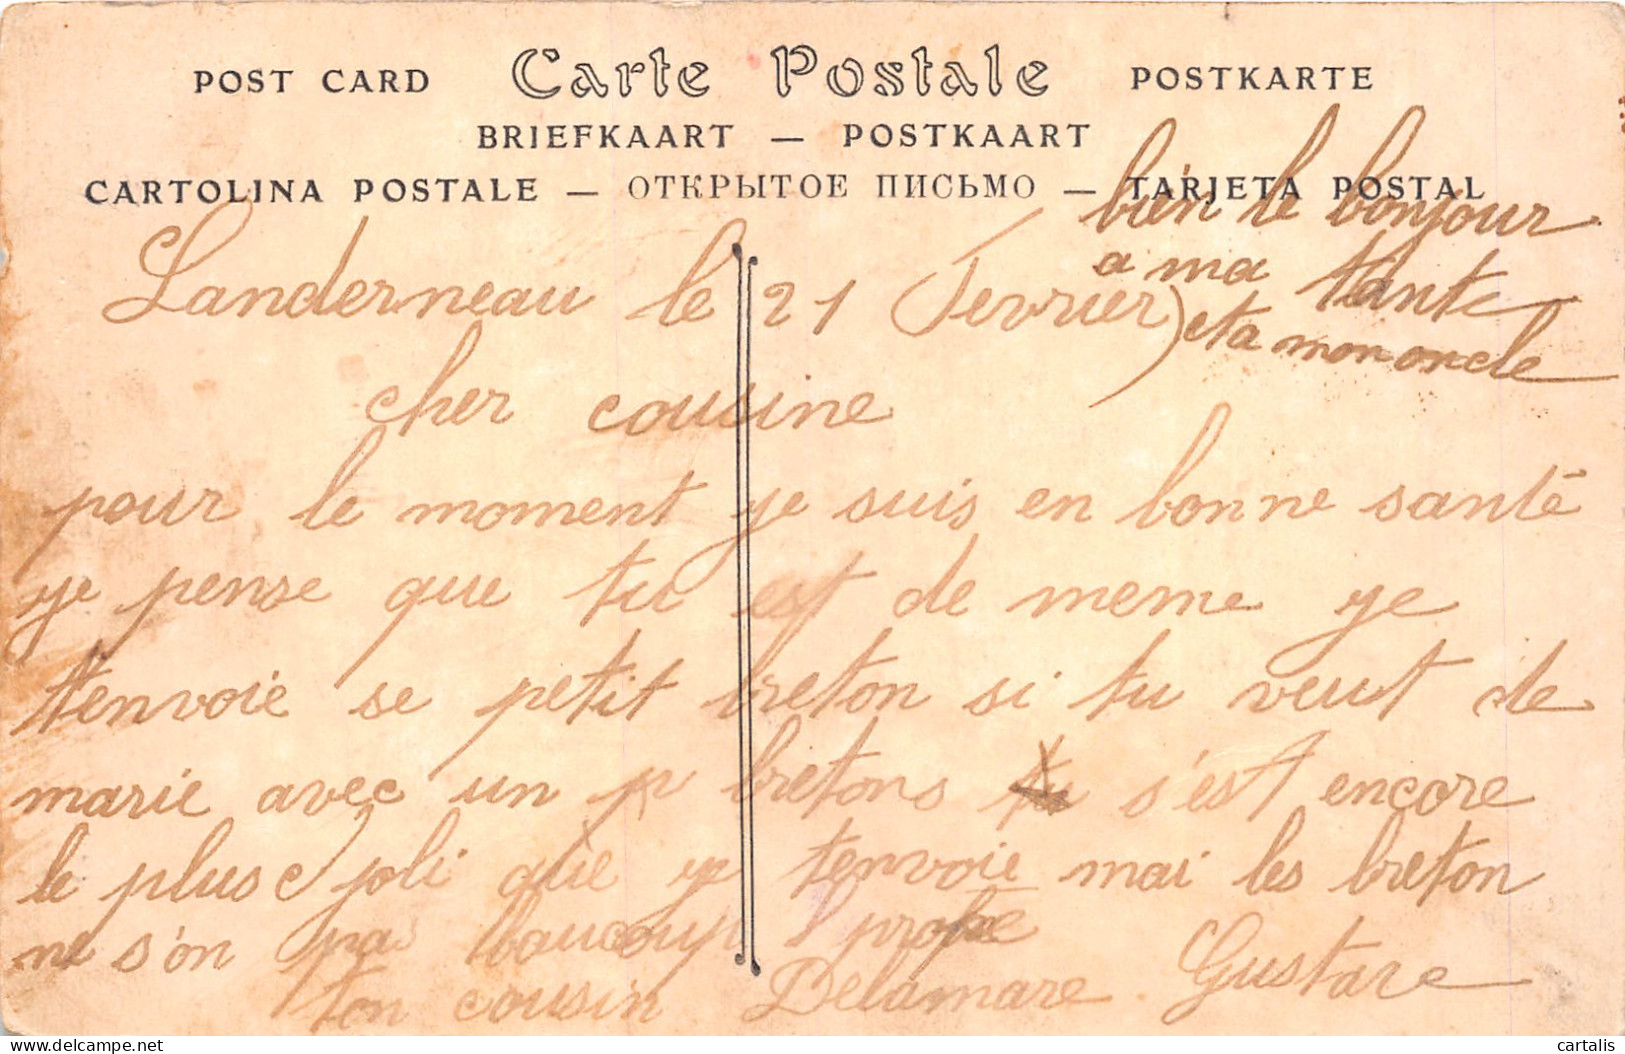 POST CARD Carte Postale POSTKARTE
BRIEFKAART — POSTKAART
CARTOLINA POSTALE — ОТКРЫТОЕ ПИСЬМО — TARJETA POSTAL
bien le bonjour
a ma tante
et a mon oncle
Landerneau le 21 Fevrier
cher cousine
pour le moment je suis en bonne santé
je pense que tu est de meme je
tenvoie se petit breton si tu veut de
marie avec un bretons s'est encore
le plus joli que je tenvoie mai les breton
ne s'on pas baucoup propre
ton cousin Delamare Gustave
cartalis